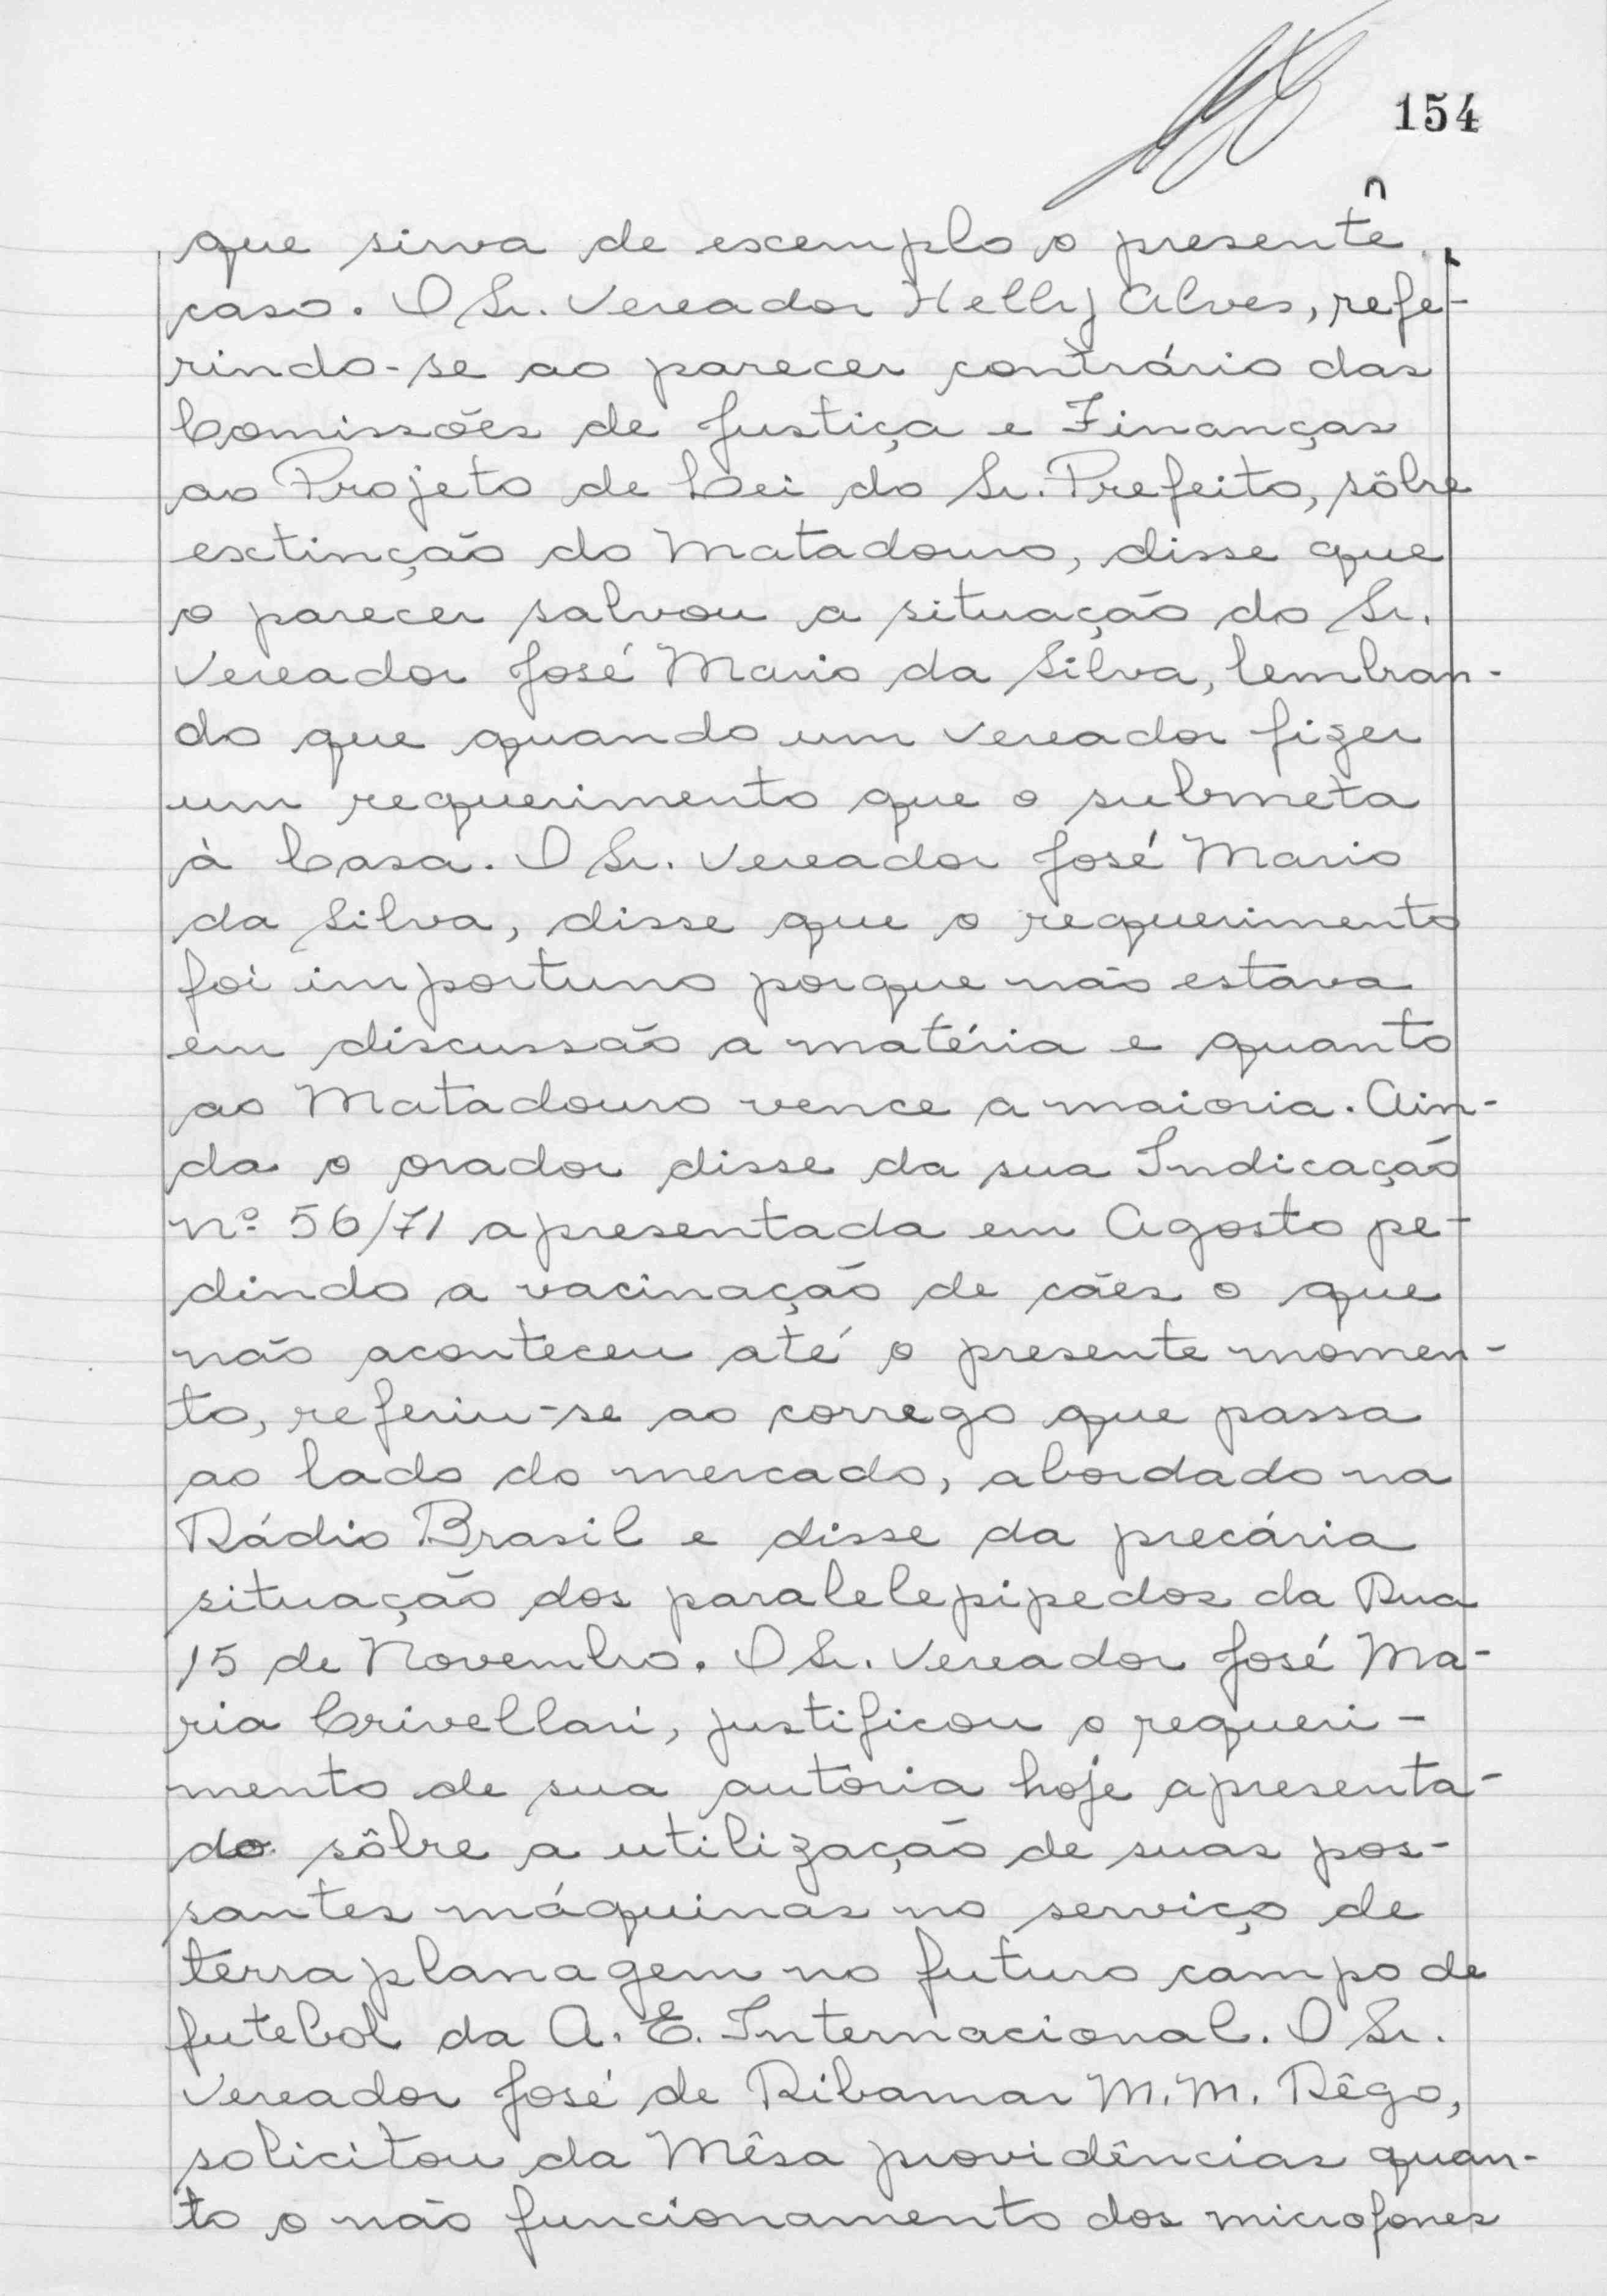 154
que sirva de exemplo o presente
caso. O Sr. Vereador Helly Alves, refe-
rindo-se ao parecer contrário das
Comissões de Justiça e Finanças
ao Projeto de Lei do Sr. Prefeito, sôbre
extinção do Matadouro, disse que
o parecer salvou a situação do Sr.
Vereador José Mario da Silva, lembran-
do que quando um vereador fizer
um requerimento que o submeta
à Casa. O Sr. Vereador José Mario
da Silva, disse que o requerimento
foi importuno porque não estava
em discussão a matéria e quanto
ao Matadouro vence a maioria. Ain-
da o orador disse da sua Indicação
nº 56/71 apresentada em Agosto pe-
dindo a vacinação de cães o que
não aconteceu até o presente momen-
to, referiu-se ao corrego que passa
ao lado do mercado, abordado na
Rádio Brasil e disse da precária
situação dos paralelepipedos da Rua
15 de Novembro. O Sr. Vereador José Ma-
ria Crivellari, justificou o requeri-
mento de sua autoria hoje apresenta-
do sôbre a utilização de suas pos-
santes máquinas no serviço de
terraplanagem no futuro campo de
futebol da A. E. Internacional. O Sr.
Vereador José de Ribamar M. M. Rêgo,
solicitou da Mêsa providências quan-
to o não funcionamento dos microfones